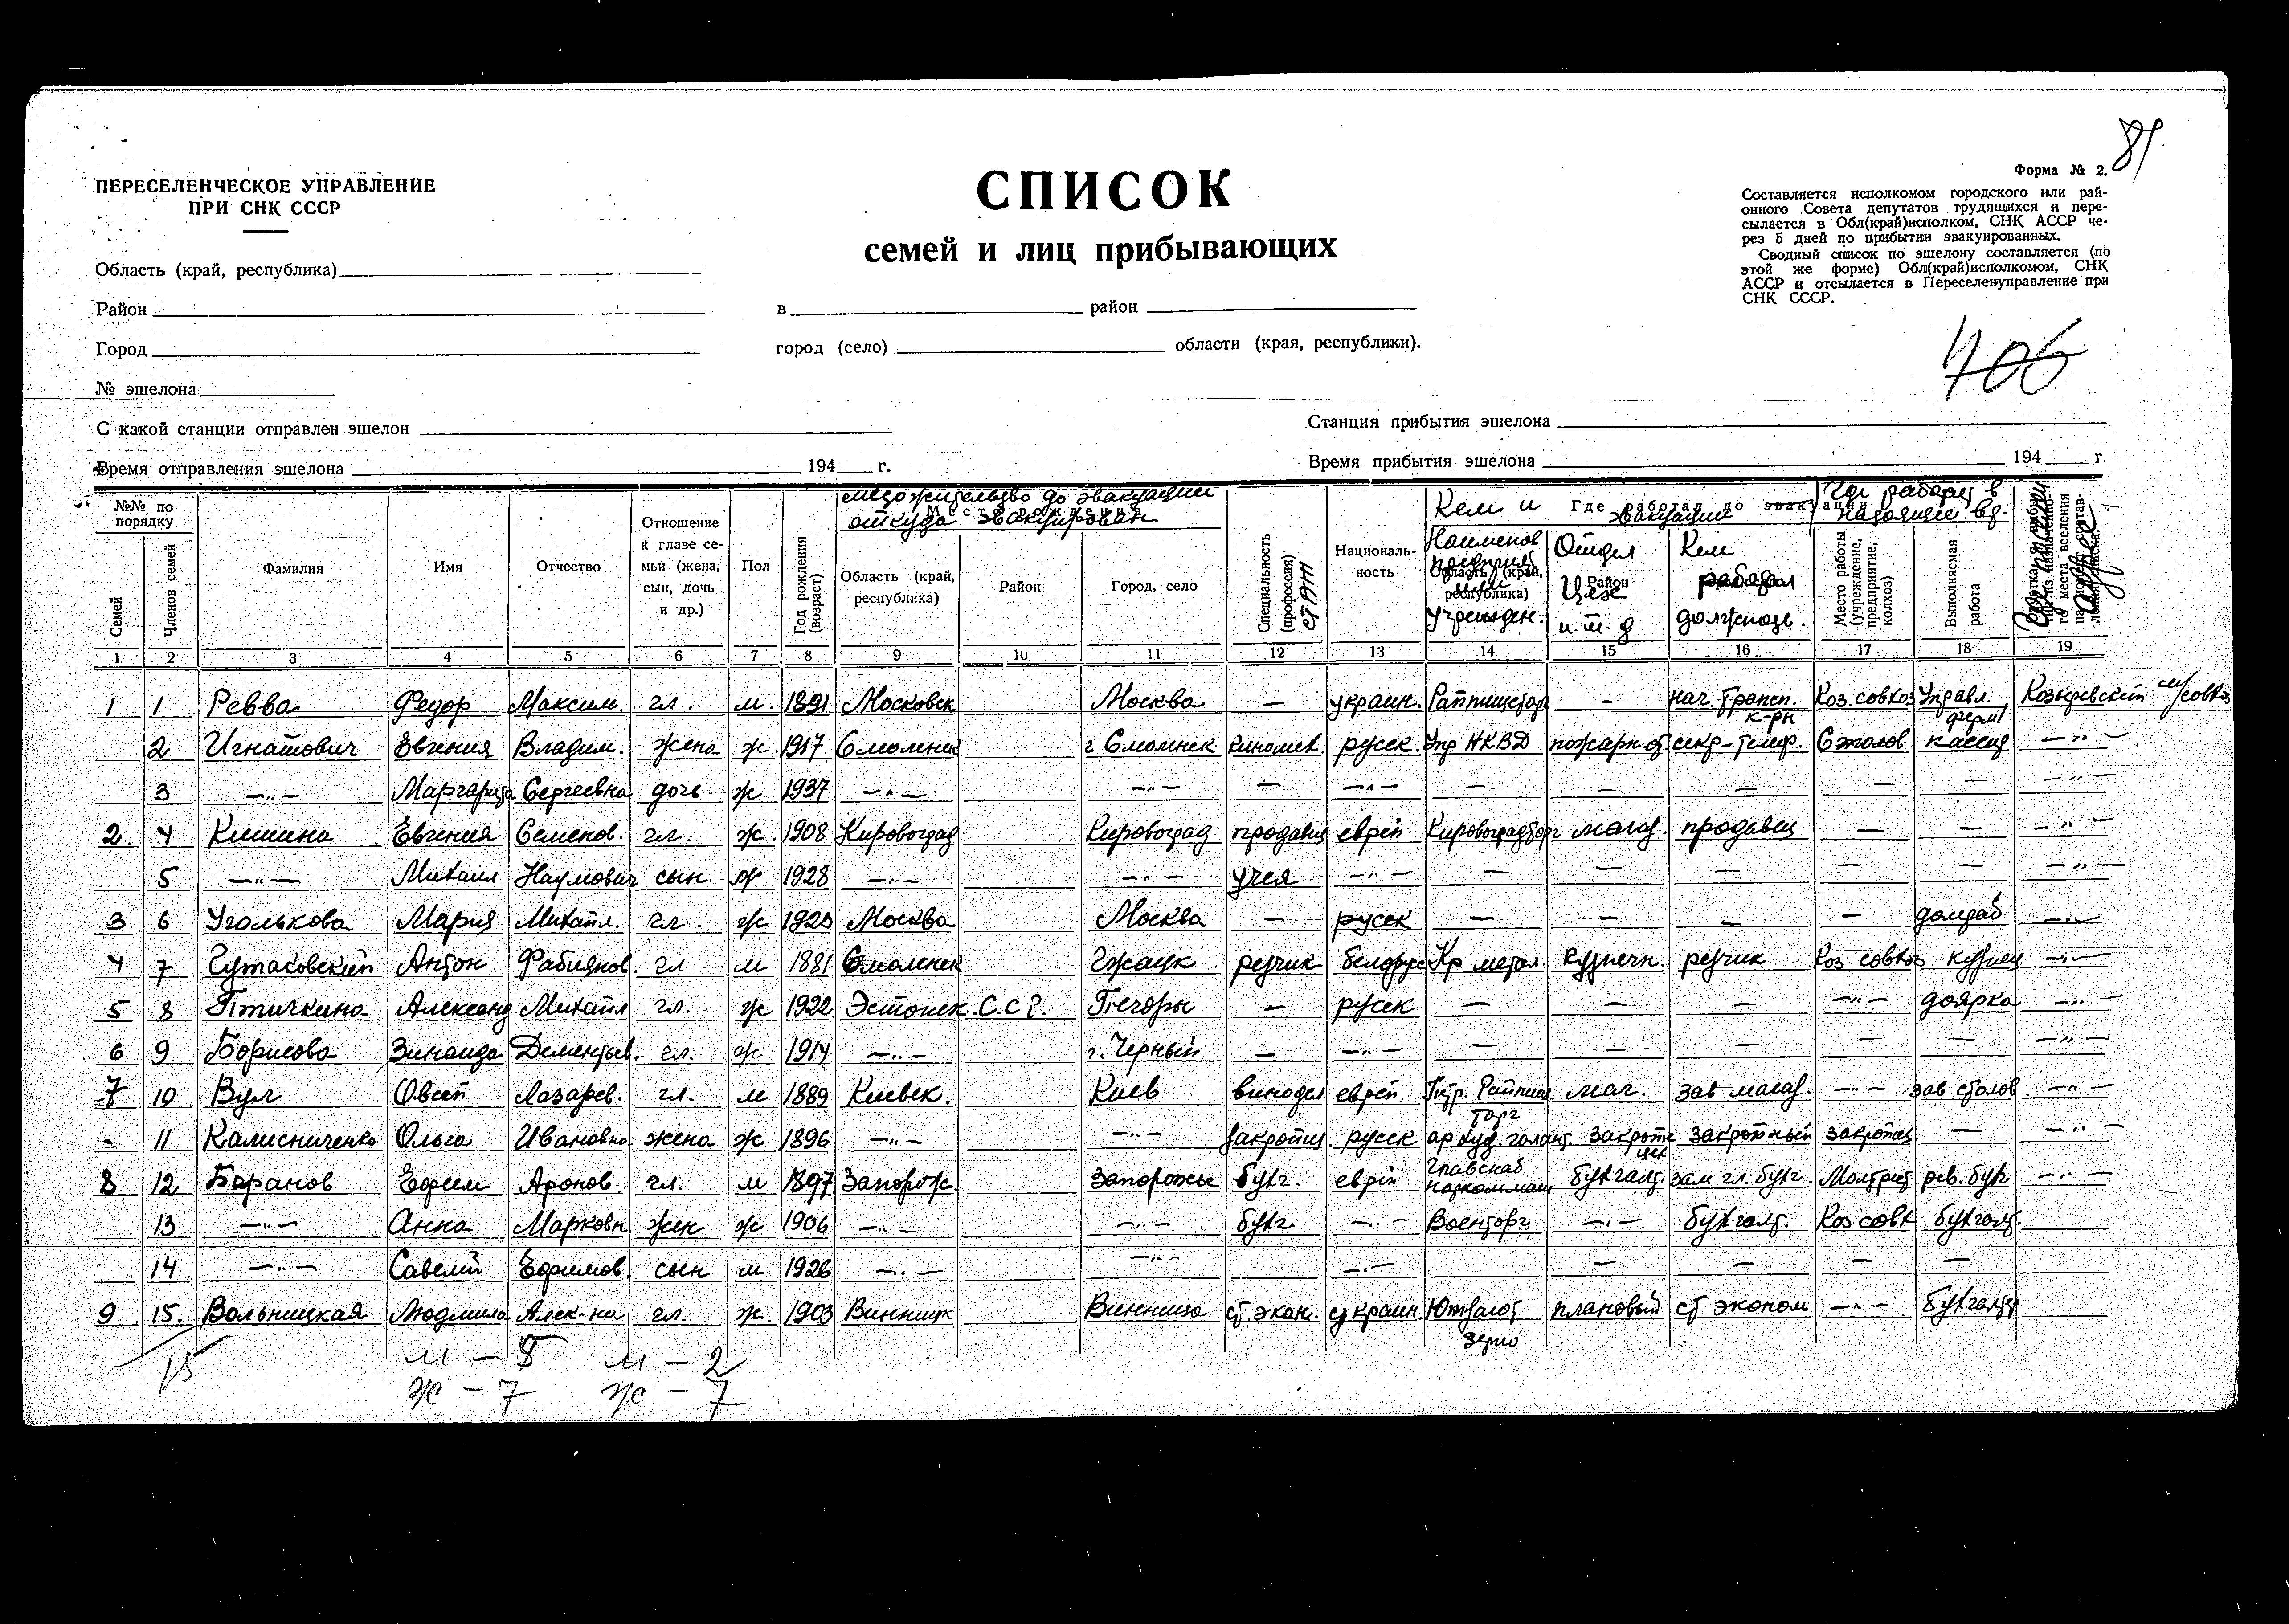 81
Форма № 2.
ПЕРЕСЕЛЕНЧЕСКОЕ УПРАВЛЕНИЕ
ПРИ СНК СССР
СПИСОК
семей и лиц прибывающих
Составляется исполкомом городского или рай-
онного Совета депутатов трудящихся и пере-
сылается в Обл(край)исполком, СНК АССР че-
рез 5 дней по прибытии эвакуированных.
Сводный список по эшелону составляется (по
этой же форме) Обл(край)исполкомом, СНК
АССР и отсылается в Переселенуправление при
СНК СССР.
Область (край, республика)
Район
в район
Город
город (село) области (края, республики).
706
№ эшелона
С какой станции отправлен эшелон
Станция прибытия эшелона
Время отправления эшелона 194 г.
Время прибытия эшелона 194 г.
№№ по порядку
Семей
Членов семей
Фамилия
Имя
Отчество
Отношение к главе се-мьи (жена, сын, дочь и др.)
Пол
Год рождения (возраст)
местожительство до эвакуации
откуда эвакуирован
Место рождения
Область (край, республика)
Район
Город, село
Специальность (профессия) стаж
Националь-ность
Кем и Где работал до эвакуации
эвакуации
Наименов предприят или учрежден.
Область (край, республика)
Отдел Цех и.т.д
Район
Кем работал должность.
Где работ в настоящее вр.
Место работы (учреждение, предприятие, колхоз)
Выполняемая работа
адрес
1 2 3 4 5 6 7 8 9 10 11 12 13 14 15 16 17 18 19
1 1 Ревва Федор Максим. гл. м. 1891 Московск Москва — украин. Райпищеторг - нач. трансп. к-ры Коз. совхоз Управл. ферм Козыревский м/совхоз
2 Игнатович Евгения Владим. жена ж. 1917 Смоленск г Смоленск киномех. русск. Упр НКВД пожарн от. секр-телеф. Столов кассир —"—
3 —"— Маргарита Сергеевна дочь ж 1937 —"— —"— — —"— — — — — — —"—
2. 4 Кишина Евгения Семенов. гл. ж. 1908 Кировоград Кировоград продавец еврей Кировоградторг магаз. продавец — — —"—
5 —"— Михаил Наумович сын ж 1928 —"— —"— учся —"— — — — — — —"—
3 6 Уголькова Мария Михайл. гл. ж Москва Москва — русск — — — — домраб —"—
4 7 Гутаковский Антон Фабиянов. гл м 1881 Смоленск Гжатск резчик белорус Кр метал. кузнечн. резчик Коз совхоз кузнец —"—
5 8 Птичкина Александ Михайл гл. ж 1922 Эстонск. С.С.Р. Печоры — русск — — — —"— доярка —"—
6 9 Борисова Зинаида Дементьев. гл. ж 1914 —"— г. Черный — —"— — — — — — —"—
7 10 Вул Овсей Лазарев. гл. м 1889 Киевск. Киев винодел еврей Петр. Райпищ торг маг. зав магаз. —"— зав столов —"—
- 11 Калисниченко Ольга Ивановна жена ж 1896 —"— —"— закройщ. русск ар худ. галант. закройн цех закройный закройщ — —"—
8 12 Баранов Ефим Аронов. гл. м 1897 Запорож. Запорожье бухг. еврей Главснаб наркоммаш бухгалт. зам гл. бухг. Молтрест рев. бухг —"—
13 —"— Анна Марковн. жен ж 1906 —"— —"— бухг. —"— Военторг. —"— бухгалт. Коз совх бухгалт.
14 —"— Савелий Ефимов. сын м 1926 —"— —"— —"— — — — —
9 15. Вольницкая Людмила Алек-на гл. ж. 1903 Винницк Винница ст экон. украин. Южзагот зерно плановый ст эконом —"— бухгалтер
15
м — 5 м — 2
ж — 7 ж — 7